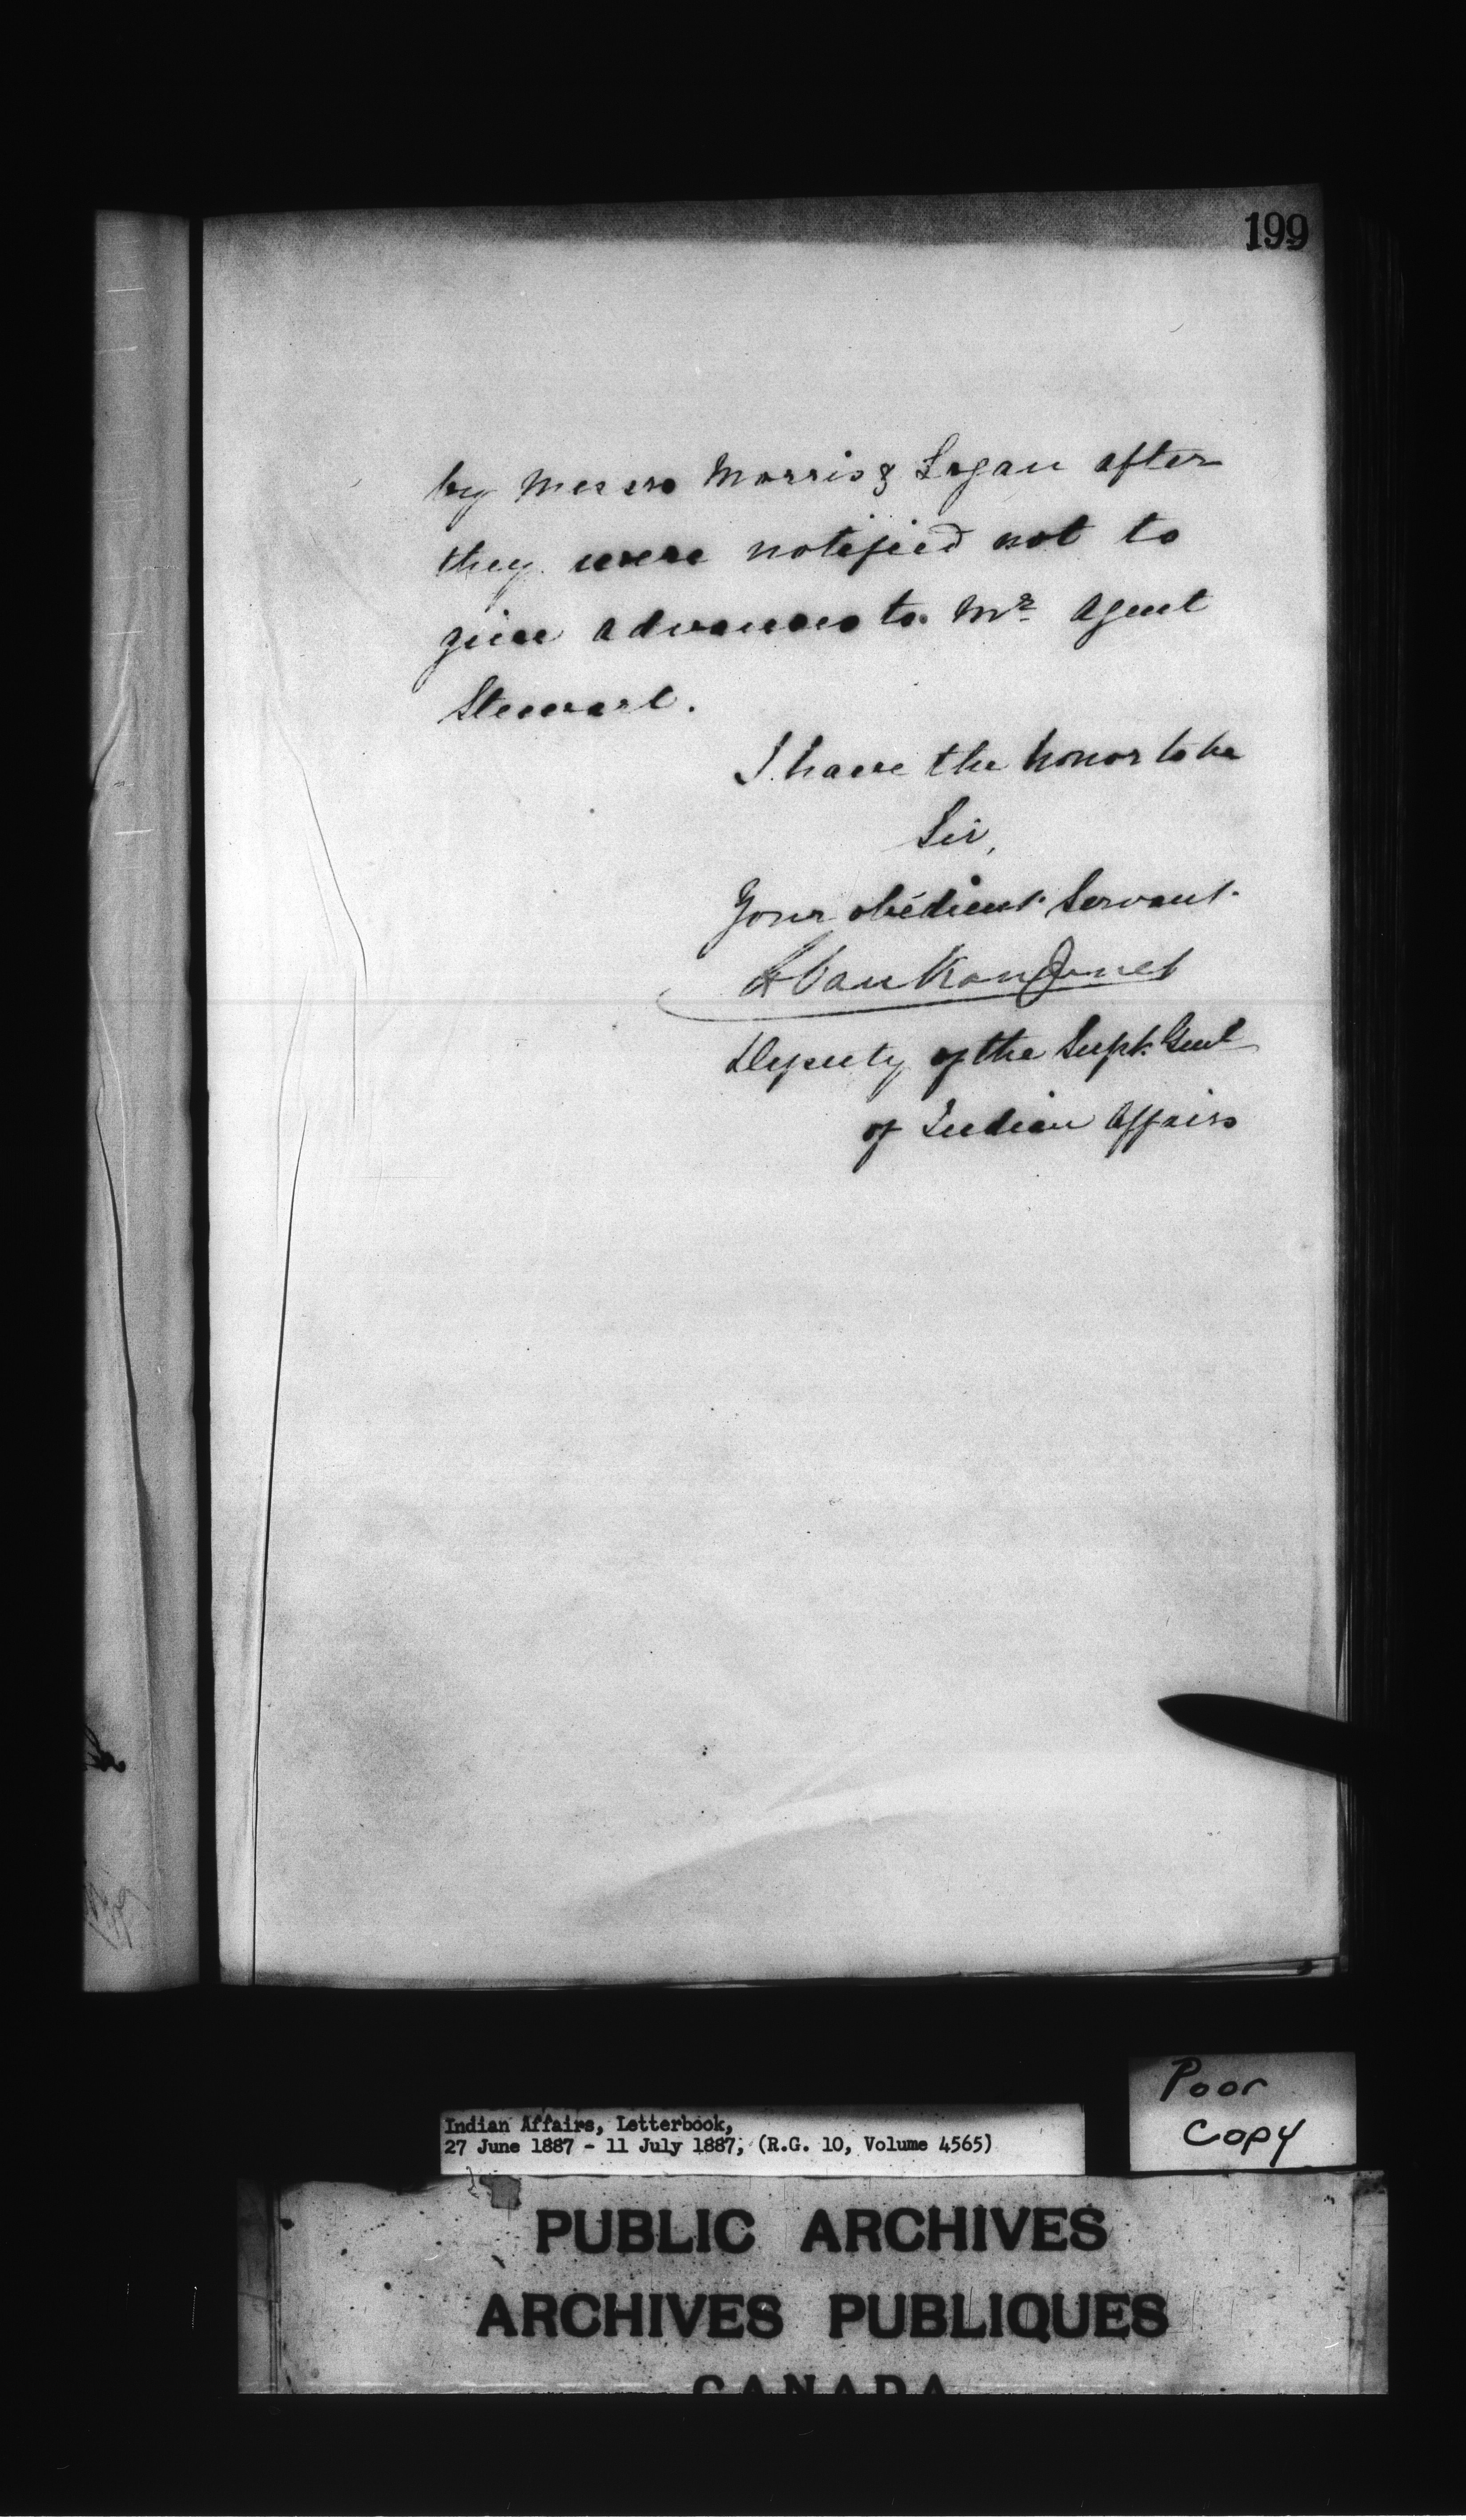 199
by Messrs Morris & Logan after
they were notified not to
give advances to Mr Agent
Stewart.
I have the honor to be
Sir,
Your obedient Servant
L VanKoughnet
Deputy of the Supt. Genl
of Indian Affairs
Poor
Copy
Indian Affairs, Letterbook,
27 June 1887 - 11 July 1887, (R.G. 10, Volume 4565)
PUBLIC ARCHIVES
ARCHIVES PUBLIQUES
CANADA